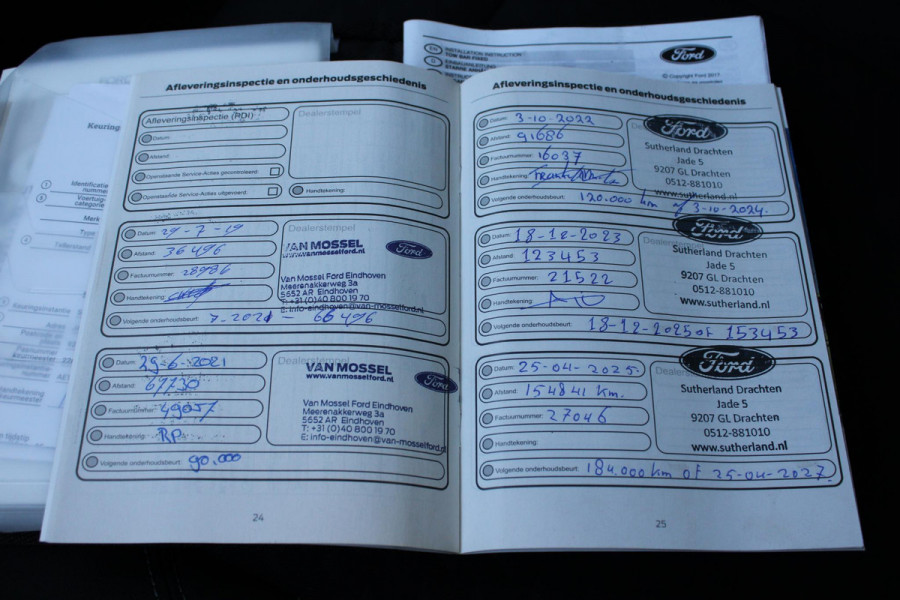 EN INSTALLATION INSTRUCTION
TOW BAR FIXED
Ford
© Copyright Ford 2017
Keuring
Identificatie
nummer
Voertuig-
categorie
Merk
Type
Tellerstand
Afleveringsinspectie en onderhoudsgeschiedenis
Afleveringsinspectie (PDI)
Dealerstempel
Datum:
Afstand:
Openstaande Service-Acties gecontroleerd:
Openstaande Service-Acties uitgevoerd:
Handtekening:
Datum: 29-7-19
Afstand: 36496
Factuurnummer: 28986
Handtekening:
Dealerstempel
VAN MOSSEL
www.vanmosselford.nl
Ford
Van Mossel Ford Eindhoven
Meerenakkerweg 3a
5652 AR Eindhoven
T: +31 (0)40 800 19 70
E: info-eindhoven@van-mosselford.nl
Volgende onderhoudsbeurt: 7-2021 - 66496
Datum: 29-6-2021
Afstand: 67730
Factuurnummer: 49057
Handtekening: RP
Dealerstempel
VAN MOSSEL
www.vanmosselford.nl
Ford
Van Mossel Ford Eindhoven
Meerenakkerweg 3a
5652 AR Eindhoven
T: +31 (0)40 800 19 70
E: info-eindhoven@van-mosselford.nl
Volgende onderhoudsbeurt: 90.000
24
Afleveringsinspectie en onderhoudsgeschiedenis
Datum: 3-10-2022
Afstand: 91686
Factuurnummer: 16037
Handtekening:
Ford
Sutherland Drachten
Jade 5
9207 GL Drachten
0512-881010
www.sutherland.nl
Volgende onderhoudsbeurt: 120.000 km of 3-10-2024.
Datum: 18-12-2023
Afstand: 123453
Factuurnummer: 21522
Handtekening:
Ford
Sutherland Drachten
Jade 5
9207 GL Drachten
0512-881010
www.sutherland.nl
Volgende onderhoudsbeurt: 18-12-2025 of 153453
Datum: 25-04-2025.
Afstand: 154841 km.
Factuurnummer: 27046
Handtekening:
Ford
Sutherland Drachten
Jade 5
9207 GL Drachten
0512-881010
www.sutherland.nl
Volgende onderhoudsbeurt: 184.000 km of 25-04-2027.
25